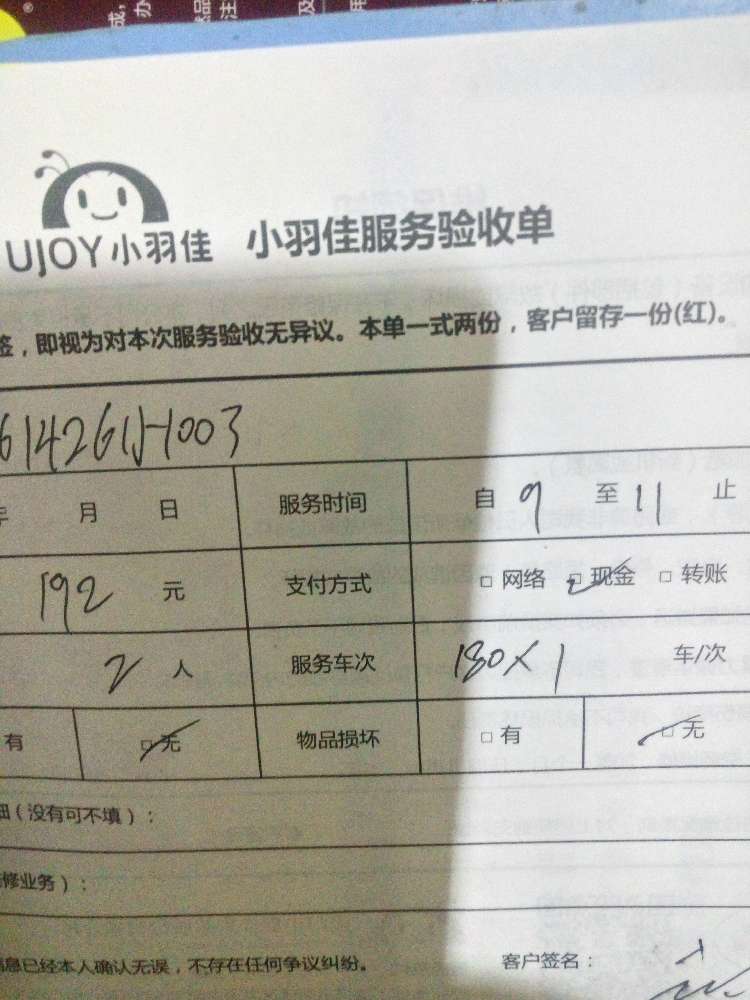 成，
办
注
及
用
UJOY小羽佳 小羽佳服务验收单
签，即视为对本次服务验收无异议。本单一式两份，客户留存一份(红)。
614261J-1003
年 月 日 服务时间 自 9 至 11 止
192 元 支付方式 □ 网络 □ 现金 □ 转账
2 人 服务车次 180×1 车/次
有 □ 无 物品损坏 □ 有 □ 无
细（没有可不填）：
修业务）：
信息已经本人确认无误，不存在任何争议纠纷。 客户签名：